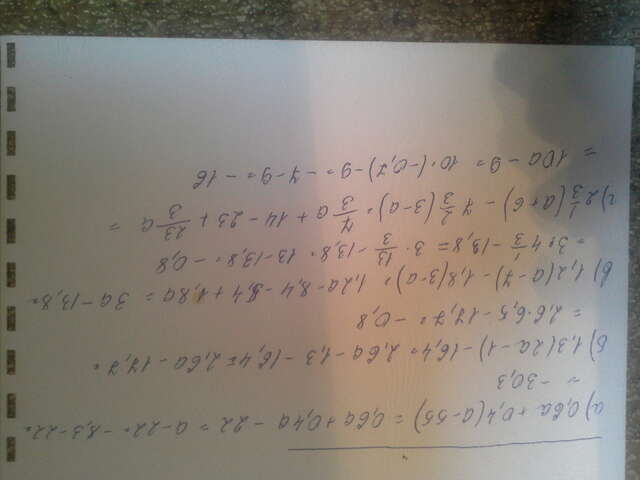 а) 0,6a + 0,4(a - 55) = 0,6a + 0,4a - 22 = a - 22 = -8,3 - 22 =
= -30,3
б) 1,3(2a - 1) - 16,4 = 2,6a - 1,3 - 16,4 = 2,6a - 17,7 =
= 2,6 · 6,5 - 17,7 = -0,8
в) 1,2(a - 7) - 1,8(3 - a) = 1,2a - 8,4 - 5,4 + 1,8a = 3a - 13,8 =
= 3 · 4 1/3 - 13,8 = 3 · 13/3 - 13,8 = 13 - 13,8 = -0,8
г) 2 1/3 (a + 6) - 7 2/3 (3 - a) = 7/3 a + 14 - 23 + 23/3 a =
= 10a - 9 = 10 · (-0,7) - 9 = -7 - 9 = -16